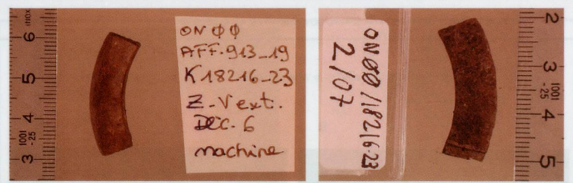 6
5
4
3
1001
-25
INOX
ON ØØ
AFF.913_19
K18216_23
Z_Vext.
DEC.6
machine
ONØØ/18216.23
2/07
2
3
4
5
1001
-25